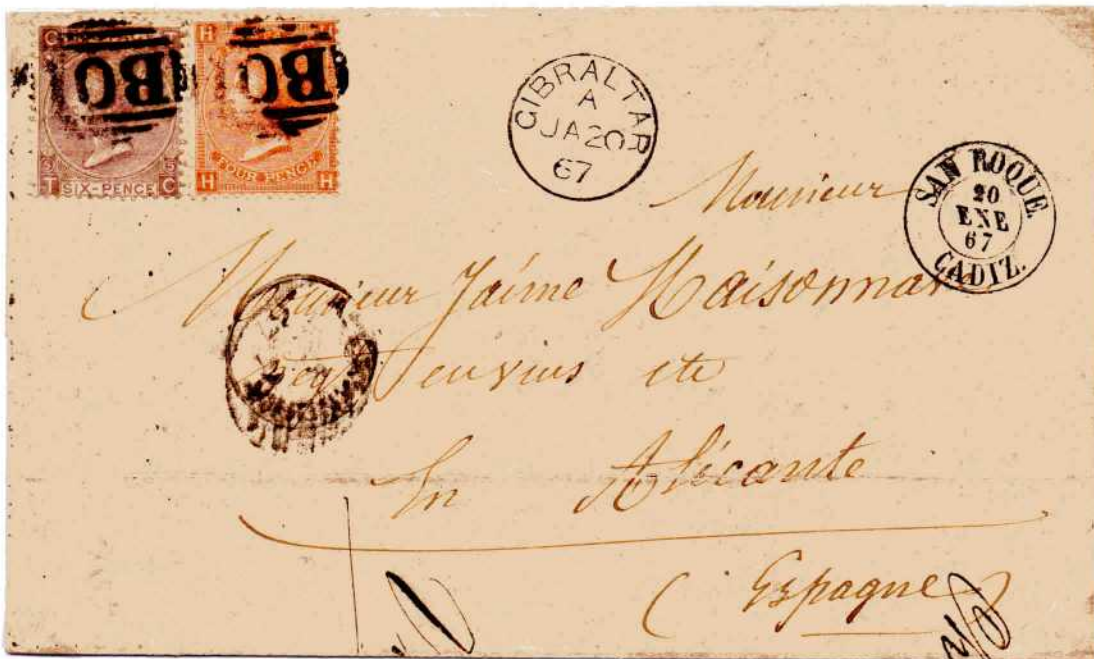 C
T C
SIX-PENCE
BO
H H
H H
FOUR PENCE
BO
GIBRALTAR
A
JA 20
67
SAN ROQUE
20
ENE
67
CADIZ.
Monsieur
Monsieur Jaime Maisonnave
etc
In Alicante
Espagne